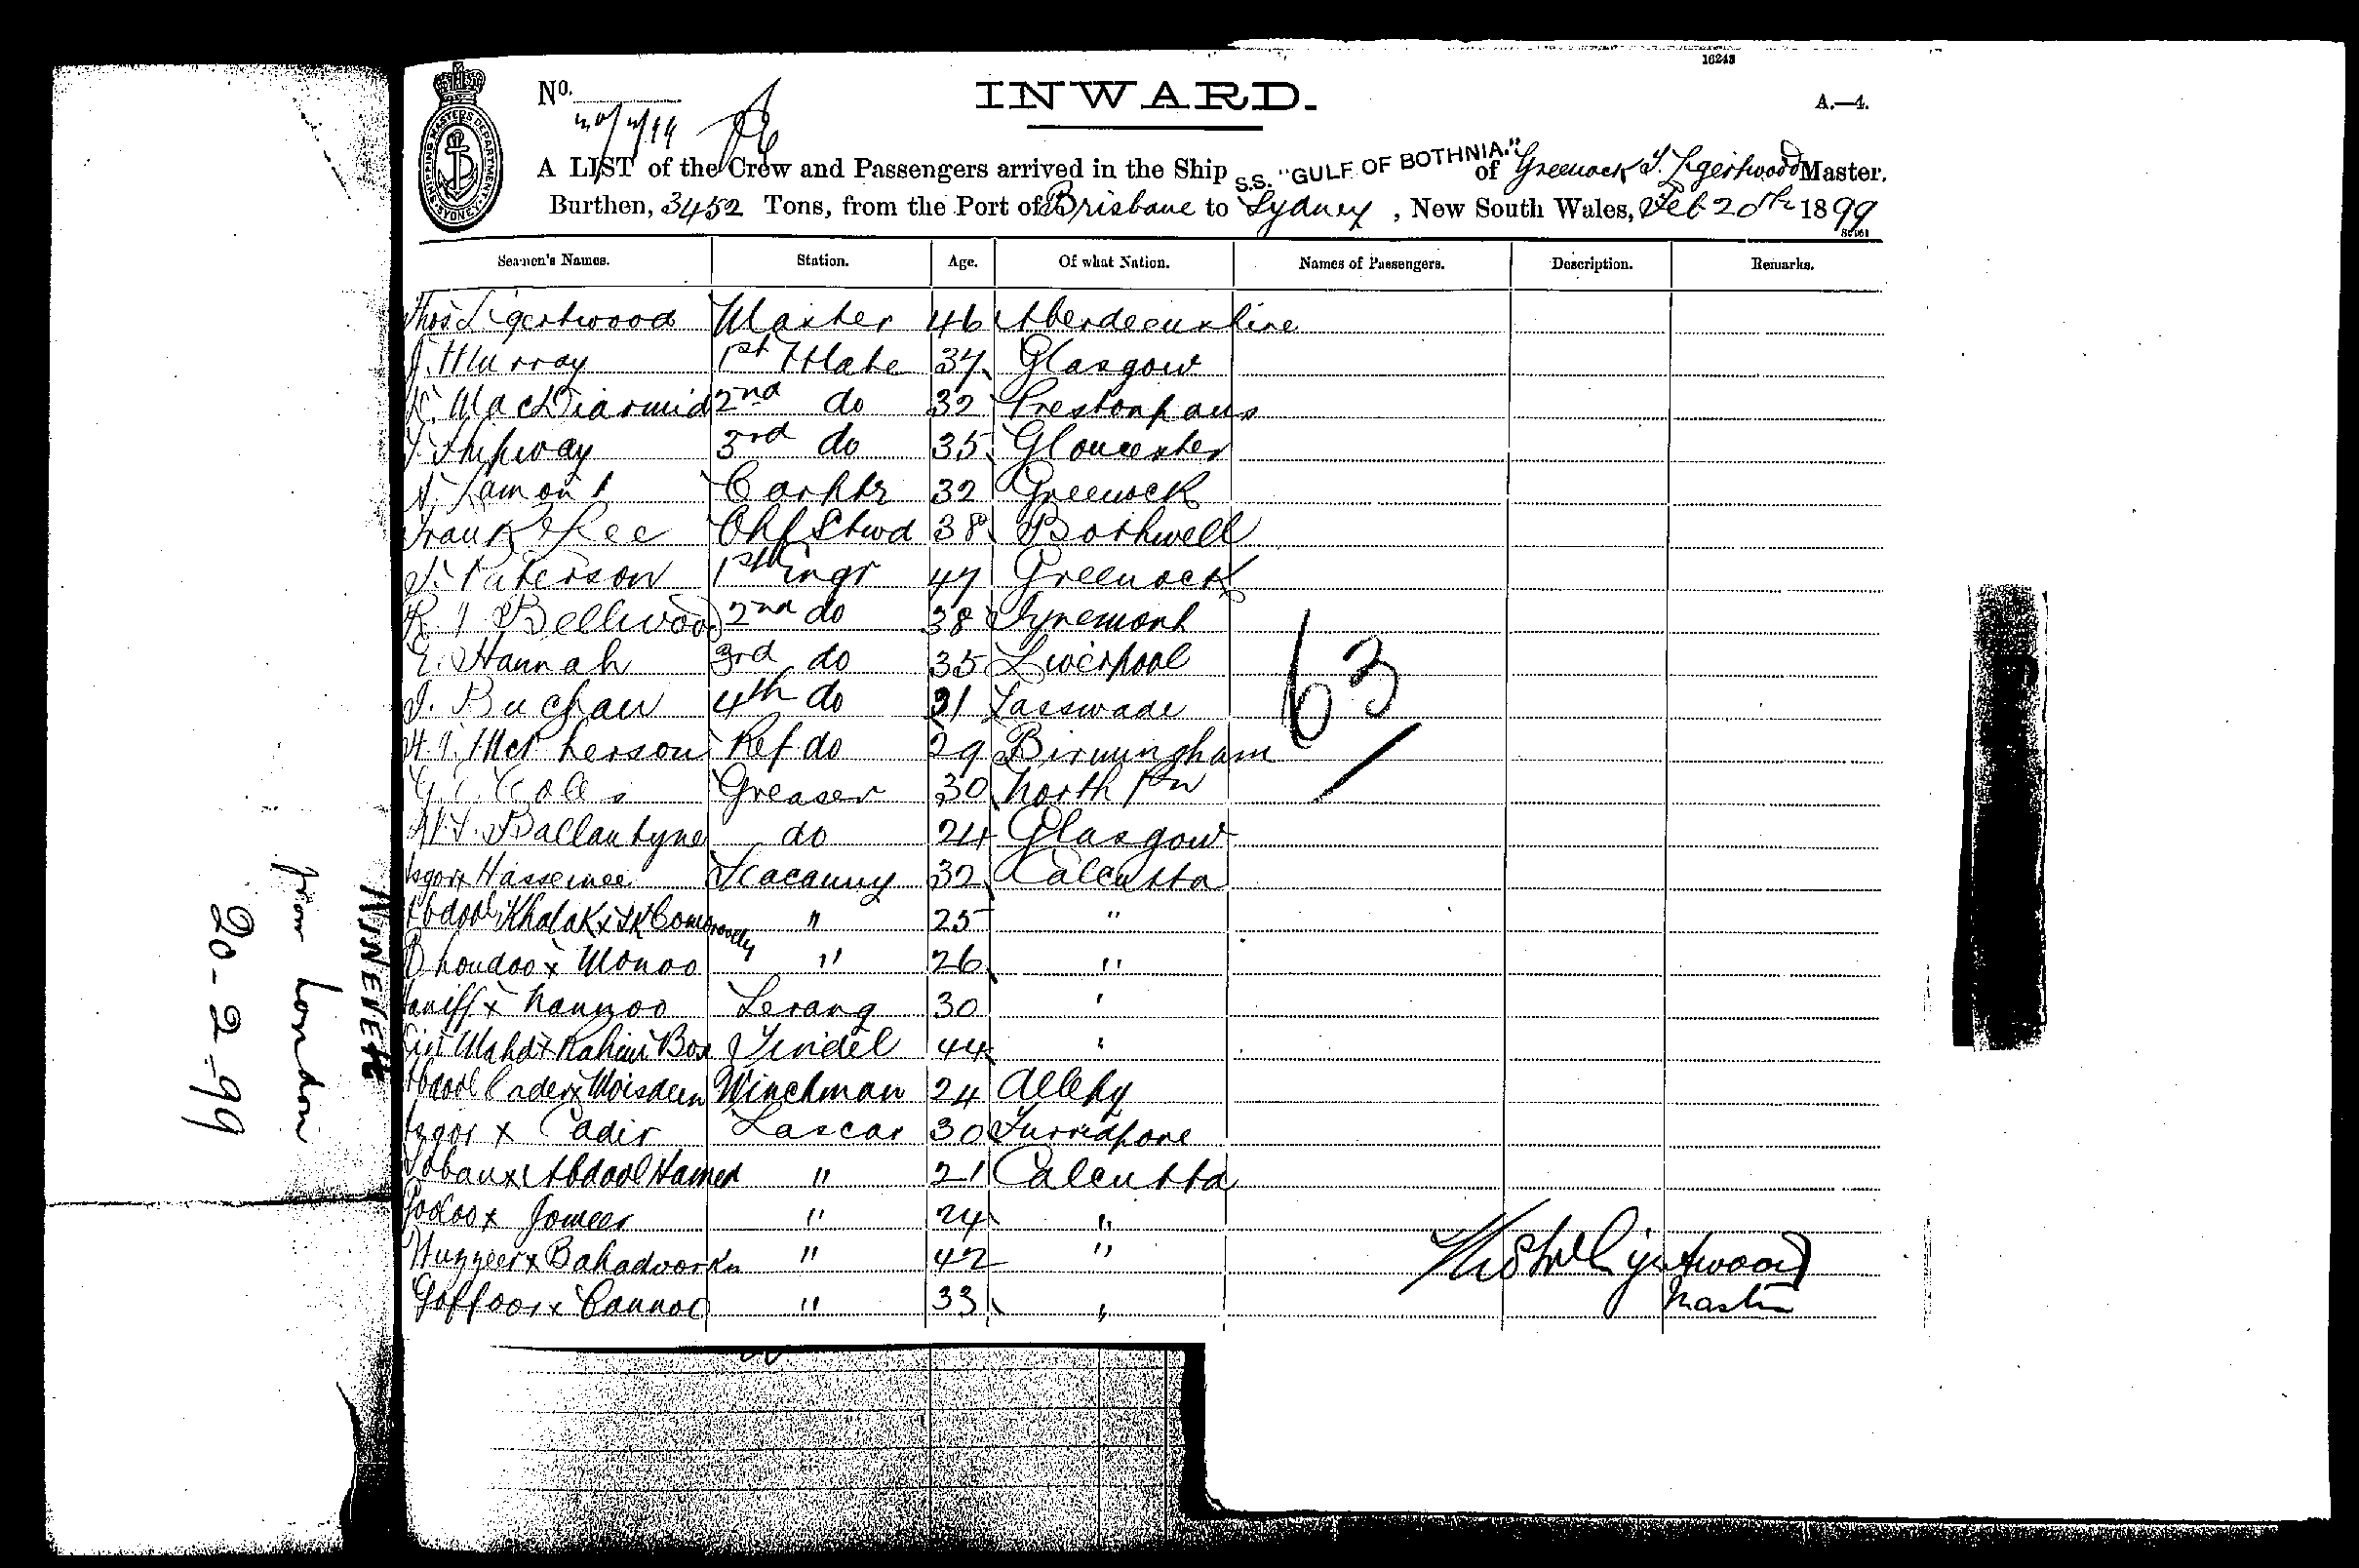 16243
No. 20/2/99
INWARD.
A.—4.
SHIPPING MASTERS DEPARTMENT SYDNEY
A LIST of the Crew and Passengers arrived in the Ship S.S. "GULF OF BOTHNIA." of Greenock T. Ligertwood Master.
Burthen, 3452 Tons, from the Port of Brisbane to Sydney, New South Wales, Feb 20th 1899
Seamen's Names. Station. Age. Of what Nation. Names of Passengers. Description. Remarks.
Thos. Ligertwood Master 46 Aberdeenshire
J. Murray 1st Mate 37 Glasgow
MacDiarmid 2nd do 32 Prestonpans
Shipway 3rd do 35 Gloucester
Lamont Carptr 32 Greenock
Frank Lee Chf Stwd 38 Bothwell
Paterson 1st Engr 47 Greenock
R. Bellwood 2nd do 38 Tynemont
Hannah 3rd do 35 Liverpool
J. Buchan 4th do 31 Lasswade
McPherson Ref do 29 Birmingham
Coles Greaser 30 North
Ballantyne do 24 Glasgow
x Hasseinee 32 Calcutta
Abdool Khalak x Sk " 25 "
Bhoudoo x Monoo " 26 "
Haniff x Nannoo Serang 30 "
Mahd x Rahim Box Tindel 44 "
Abdool Cader x Moisdeen Winchman 24 Allepy
Asgor x Cadir Lascar 30
Soban x Abdool Hamed " 21 Calcutta
Goloo x Jomeer " 24 "
Nuzzeer x Bahadoor Kn " 42 "
Goffoor x Cannoo " 33 "
63
Thos. Ligertwood
Master
NINEVEH
from London
20-2-99